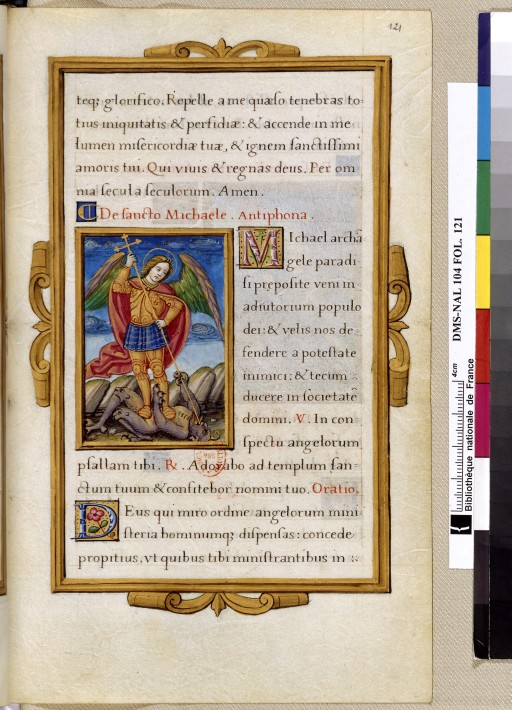 121
teq; glorifico. Repelle a me quæso tenebras to
tius iniquitatis & perfidiæ: & accende in me
lumen misericordiæ tuæ, & ignem sanctissimi
amoris tui. Qui viuis & regnas deus. Per om
nia secula seculorum. Amen.
De sancto Michaele. Antiphona.
Michael archa
gele paradi
si preposite veni in
adiutorium populo
dei: & velis nos de
fendere a potestate
inimici: & tecum
ducere in societate
domini. V. In con
spectu angelorum
psallam tibi. R. Adorabo ad templum san
ctum tuum & confitebor nomini tuo. Oratio.
DEus qui miro ordine angelorum mini
steria hominumq; dispensas: concede
propitius, vt quibus tibi ministrantibus in
DMS-NAL 104 FOL. 121
4cm
Bibliothèque nationale de France